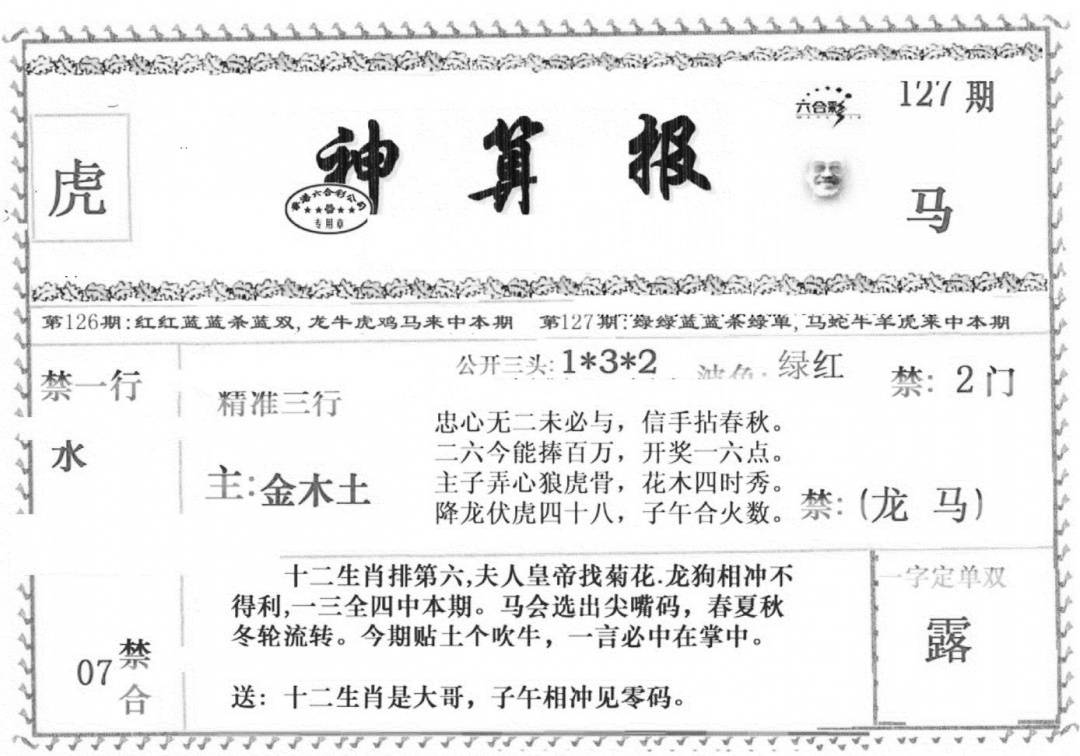 六合彩
127期
虎
神算报
香港六合彩公司
专用章
马
第126期:红红蓝蓝杀蓝双,龙牛虎鸡马来中本期
第127期:绿绿蓝蓝杀绿单,马蛇牛羊虎来中本期
公开三头:1*3*2
波色:绿红
禁:2门
禁一行
水
精准三行
主:金木土
忠心无二未必与，信手拈春秋。
二六今能捧百万，开奖一六点。
主子弄心狼虎骨，花木四时秀。
降龙伏虎四十八，子午合火数。
禁:(龙 马)
十二生肖排第六,夫人皇帝找菊花.龙狗相冲不
得利,一三全四中本期。马会选出尖嘴码，春夏秋
冬轮流转。今期贴士个吹牛，一言必中在掌中。
送：十二生肖是大哥，子午相冲见零码。
07禁合
一字定单双
露